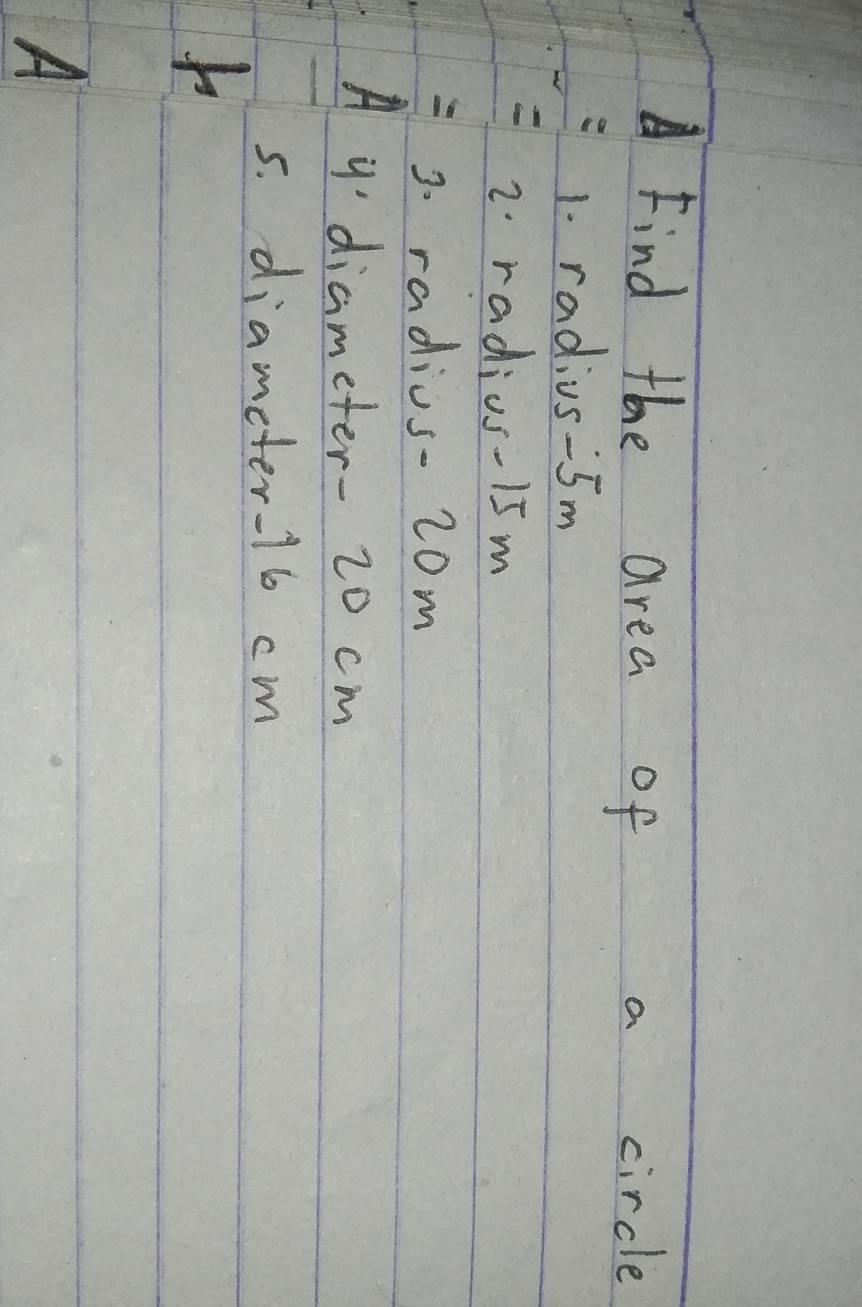 Find the area of a circle
1. radius-5m
2. radius-15m
3. radius- 20m
4. diameter- 20 cm
5. diameter-16 cm